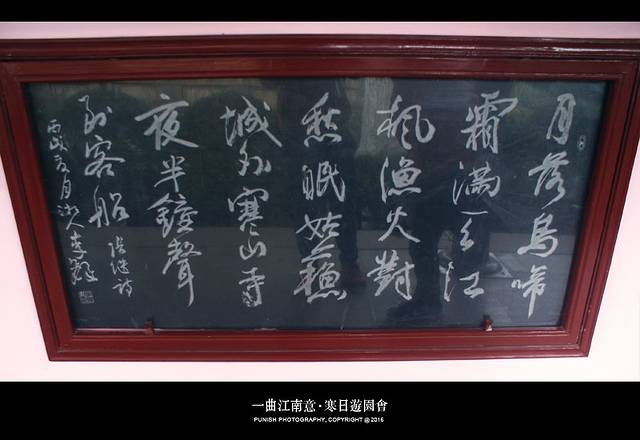 月落烏啼
霜滿天江
楓漁火對
愁眠姑蘇
城外寒山寺
夜半鐘聲
到客船 張繼詩
一曲江南意·寒日遊園會
PUNISH PHOTOGRAPHY, COPYRIGHT @ 2016